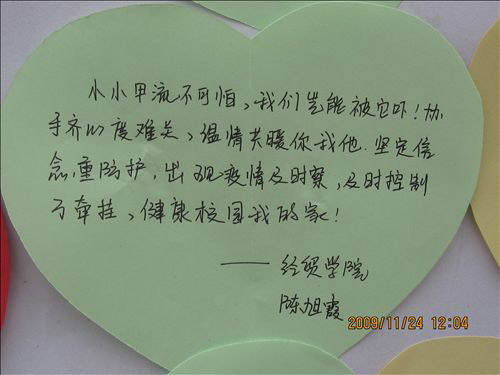 小小甲流不可怕，我们岂能被它吓！协
手齐心度难关，温情共暖你我他.坚定信
念重防护，出现疫情及时察，及时控制
了牵挂，健康校园我的家！
——经贸学院
陈旭霞
2009/11/24 12:04